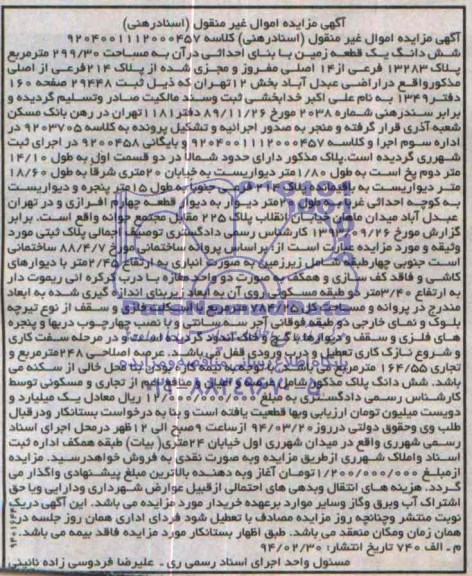 آگهی مزایده اموال غیر منقول (اسنادرهنی)
آگهی مزایده اموال غیر منقول (اسنادرهنی) کلاسه ۹۲۰۴۰۰۱۱۱۲۰۰۰۴۵۷
شش دانگ یک قطعه زمین با بنای احداثی درآن به مساحت ۲۹۹/۳۰ مترمربع
پلاک ۱۳۲۸۳ فرعی از۱۴ اصلی مفروز و مجزی شده از پلاک ۲۱۴فرعی از اصلی
مذکورواقع دراراضی عبدل آباد بخش ۱۲تهران که ذیل ثبت ۲۹۴۴۸ صفحه ۱۶۰
دفتر۱۳۴۹ به نام علی اکبر خدابخشی ثبت وسند مالکیت صادر وتسلیم گردیده و
برابر سندرهنی شماره ۲۰۳۸ مورخ ۸۹/۱۱/۲۶ دفتر۱۱۸۱تهران در رهن بانک مسکن
شعبه آذری قرار گرفته و منجر به صدور اجرائیه و تشکیل پرونده به کلاسه ۹۲۰۳۷۰۵ در
اداره سوم اجرا و کلاسه ۹۲۰۴۰۰۱۱۱۲۰۰۰۴۵۷ و بایگانی ۹۲۰۰۴۵۸ در اجرای ثبت
شهرری گردیده است.پلاک مذکور دارای حدود شمالا در دو قسمت اول به طول ۱۴/۱۰
متر دوم پخ است به طول ۱/۸۰متر دیواریست به خیابان ۲۰متری شرقا به طول ۱۸/۶۰
متر دیواریست به باقیمانده ۲۱۴ فرعی جنوبا به طول ۱۵متر پنجره و دیواریست
به کوچه احداثی غربا به طول ۲۰متر دیوار به دیوار قطعه چهارم افرازی و در تهران
عبدل آباد میدان ماهان خیابان انقلاب پلاک ۲۲۵ مقابل مجتمع جوانه واقع است. برابر
گزارش مورخ ۱۳۹۳/۰۹/۲۶ کارشناس رسمی دادگستری توصیف اجمالی پلاک ثبتی مورد
وثیقه و مورد مزایده عبارت است از: براساس پروانه ساختمانی مورخ ۸۸/۴/۷ ساختمانی
است جنوبی چهارطبقه شامل زیرزمین به صورت انباری به ارتفاع ۲/۴۵متر با دیوارهای
کاشی و فاقد کف سازی و همکف به صورت دو واحد مغازه با درب کرکره ائی ریموت دار
به ارتفاع ۳/۴۰متر دو طبقه مسکونی روی آن به ابعاد زیربنای اندازه گیری شده به ابعاد
مندرج در پروانه و مساحت کل ۷۸۲/۲۵ مترمربع با اسکلت فلزی و سقف از نوع تیرچه
بلوک و نمای خارجی دو طبقه فوقانی آجر سه سانتی و با نصب چهارچوب دربها و پنجره
های فلزی و سقف و دیوارها گچ و خاک اندود گردیده است و در مرحله سفت کاری
و شروع نازک کاری تعطیل و درب ورودی قفل می باشد. عرصه اصلاحی ۲۴۸مترمربع و
تجاری ۱۶۴/۵۵ مترمربع می باشد. با توجه به نیمه کاره بودن محل خالی از سکنه می
باشد. شش دانگ پلاک مذکور شامل عرصه و اعیان و منافع اعم از تجاری و مسکونی توسط
کارشناس رسمی دادگستری به مبلغ ۱۲/۰۰۰/۰۰۰/۰۰۰ ریال معادل یک میلیارد و
دویست میلیون تومان ارزیابی وبها قطعیت یافته است و بنا به درخواست بستانکار ودرقبال
طلب وی وحقوق دولتی درروز۹۴/۰۳/۲۰ ازساعت ۹صبح الی ۱۲ظهر درمحل اجرای اسناد
رسمی شهرری واقع در میدان شهرری اول خیابان ۲۴متری( بیات) طبقه همکف اداره ثبت
اسناد واملاک شهرری ازطریق مزایده وبه صورت نقدی به فروش خواهدرسید. مزایده
ازمبلغ ۱/۲۰۰/۰۰۰/۰۰۰تومان آغاز وبه دهنده بالاترین مبلغ پیشنهادی واگذار می
گردد. هزینه های انتقال وبدهی های احتمالی ازقبیل عوارض شهرداری ودارایی ویا حق
اشتراک آب وبرق وگاز وسایر موارد برعهده خریدار مورد مزایده می باشد. این آگهی دریک
نوبت منتشر وچنانچه روز مزایده مصادف با تعطیل شود فردای اداری همان روز جلسه در
همان زمان ومکان منعقد می باشد. طبق اظهار بستانکار مورد مزایده فاقد بیمه می باشد.
م ـ الف ۷۴۰ تاریخ انتشار: ۹۴/۰۲/۳۰
مسئول واحد اجرای اسناد رسمی ری ـ علیرضا فردوسی زاده نائینی